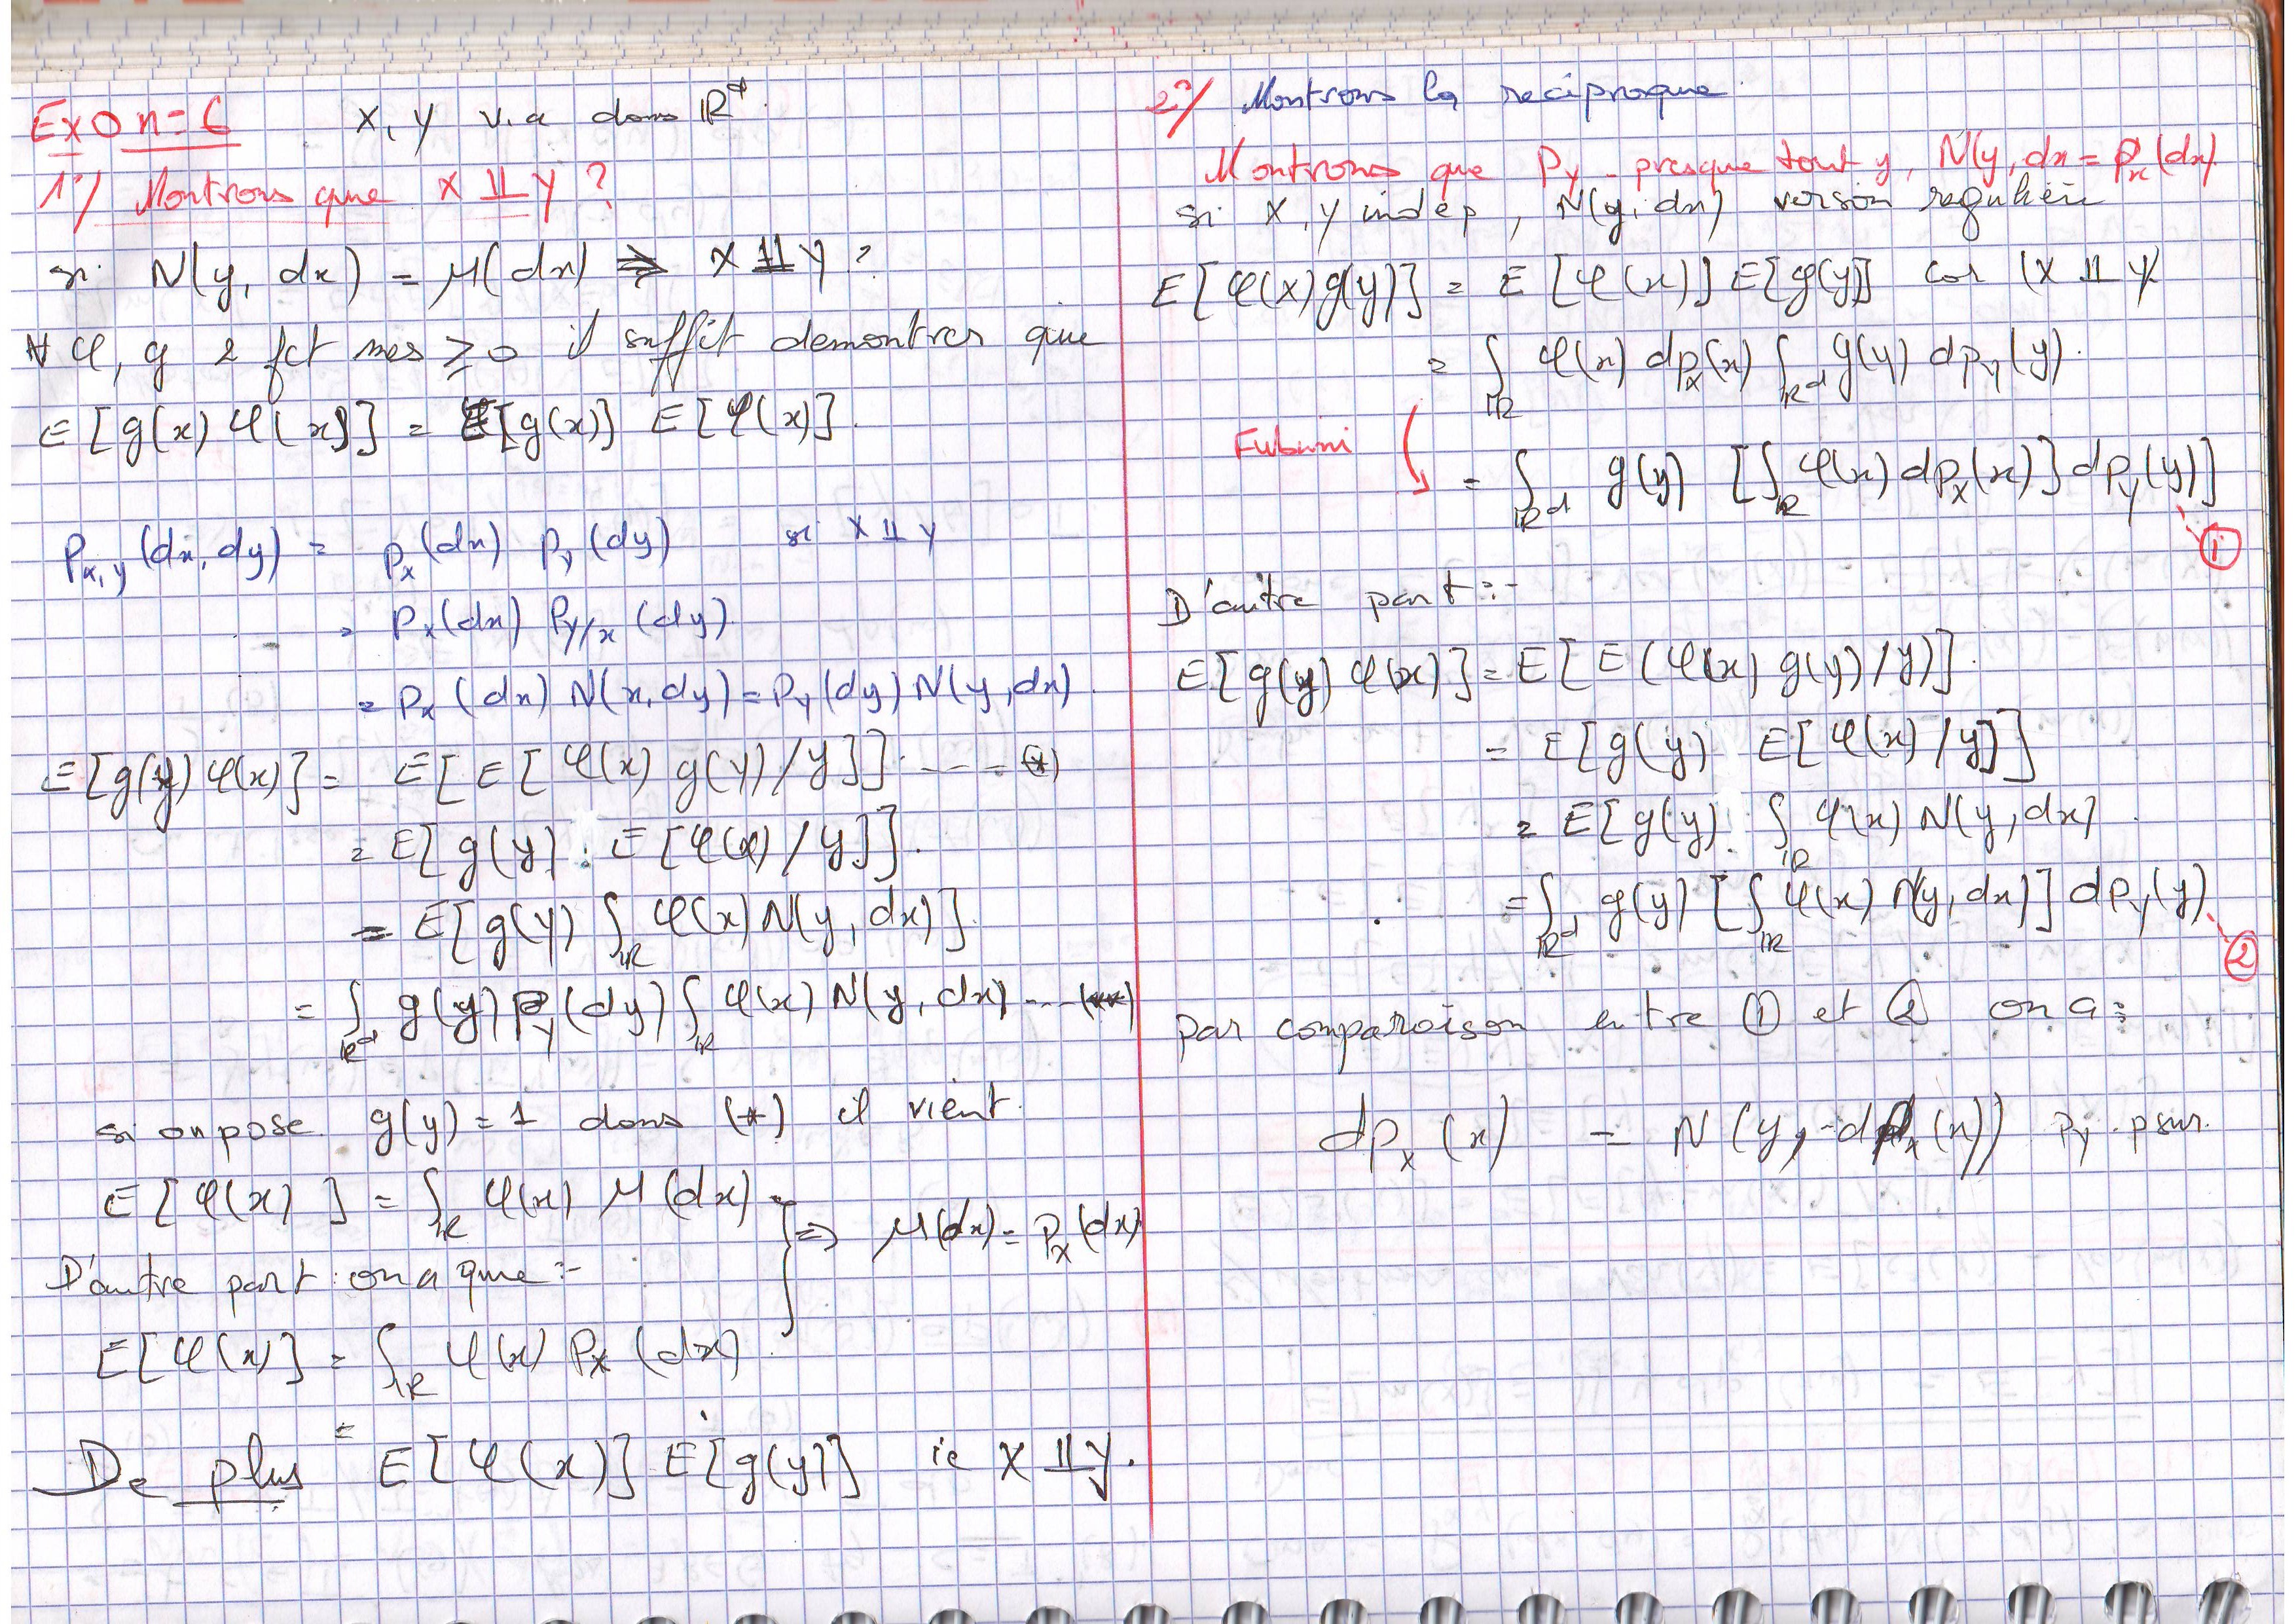 Exo n=6 X, Y v.a dans ℝ^d.
1°/ Montrons que X ⫫ Y ?
si N(y, dx) = μ(dx) ⇒ X ⫫ Y ?
∀ φ, g 2 fct mes ⩾ 0 il suffit demontrer que
E[g(x) φ(x)] = E[g(x)] E[φ(x)].
P_{x,y}(dx, dy) = P_x(dx) P_y(dy) si X ⫫ Y
= P_x(dx) P_{y/x}(dy)
= P_x(dx) N(x, dy) = P_y(dy) N(y, dx).
E[g(y) φ(x)] = E[E[φ(x) g(y)/y]] ---- (*)
= E[g(y) . E[φ(x)/y]].
= E[g(y) ∫_ℝ φ(x) N(y, dx)].
= ∫_{ℝ^d} g(y) P_y(dy) ∫_ℝ φ(x) N(y, dx) --- (**)
si on pose g(y) = 1 dans (*) il vient.
E[φ(x)] = ∫_ℝ φ(x) μ(dx)
⇒ μ(dx) = P_x(dx)
D'autre part on a que :-
E[φ(x)] = ∫_ℝ φ(x) P_x(dx).
De plus = E[φ(x)] E[g(y)] ie X ⫫ Y.
2°/ Montrons la reciproque.
Montrons que P_y - presque tout y, N(y, dx = P_x(dx).
si X, Y indep, N(y, dx) version regulière
E[φ(x) g(y)] = E[φ(x)] E[g(y)] car (X ⫫ Y)
= ∫_ℝ φ(x) dp_x(x) ∫_{ℝ^d} g(y) dp_y(y).
Fubuni
= ∫_{ℝ^d} g(y) [∫_ℝ φ(x) dp_x(x)] dp_y(y)]
①
D'autre part :-
E[g(y) φ(x)] = E[E(φ(x) g(y)/y)].
= E[g(y) E[φ(x)/y]]
= E[g(y) . ∫_ℝ φ(x) N(y, dx).
= ∫_{ℝ^d} g(y) [∫_ℝ φ(x) N(y, dx)] dp_y(y)
②
par comparaison entre ① et ② on a :
dp_x(x) = N(y, dp_x(x)) P_y - psur.